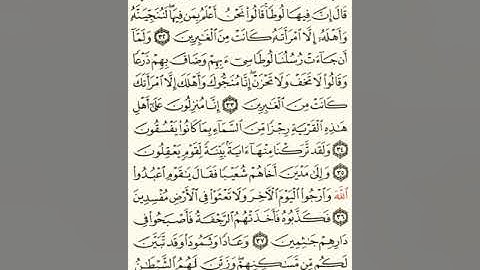 قَالَ إِنَّ فِيهَا لُوطًا قَالُوا۟ نَحْنُ أَعْلَمُ بِمَن فِيهَا لَنُنَجِّيَنَّهُۥ
وَأَهْلَهُۥٓ إِلَّا ٱمْرَأَتَهُۥ كَانَتْ مِنَ ٱلْغَٰبِرِينَ ٣٢ وَلَمَّآ
أَن جَآءَتْ رُسُلُنَا لُوطًا سِىٓءَ بِهِمْ وَضَاقَ بِهِمْ ذَرْعًا
وَقَالُوا۟ لَا تَخَفْ وَلَا تَحْزَنْ إِنَّا مُنَجُّوكَ وَأَهْلَكَ إِلَّا ٱمْرَأَتَكَ
كَانَتْ مِنَ ٱلْغَٰبِرِينَ ٣٣ إِنَّا مُنزِلُونَ عَلَىٰٓ أَهْلِ
هَٰذِهِ ٱلْقَرْيَةِ رِجْزًا مِّنَ ٱلسَّمَآءِ بِمَا كَانُوا۟ يَفْسُقُونَ
٣٤ وَلَقَد تَّرَكْنَا مِنْهَآ ءَايَةًۢ بَيِّنَةً لِّقَوْمٍ يَعْقِلُونَ
٣٥ وَإِلَىٰ مَدْيَنَ أَخَاهُمْ شُعَيْبًا فَقَالَ يَٰقَوْمِ ٱعْبُدُوا۟
ٱللَّهَ وَٱرْجُوا۟ ٱلْيَوْمَ ٱلْءَاخِرَ وَلَا تَعْثَوْا۟ فِى ٱلْأَرْضِ مُفْسِدِينَ
٣٦ فَكَذَّبُوهُ فَأَخَذَتْهُمُ ٱلرَّجْفَةُ فَأَصْبَحُوا۟ فِى
دَارِهِمْ جَٰثِمِينَ ٣٧ وَعَادًا وَثَمُودَا۟ وَقَد تَّبَيَّنَ
لَكُم مِّن مَّسَٰكِنِهِمْ وَزَيَّنَ لَهُمُ ٱلشَّيْطَٰنُ